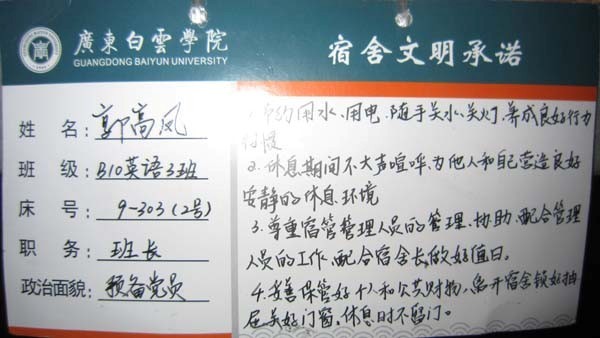 廣東白雲學院
GUANGDONG BAIYUN UNIVERSITY
宿舍文明承诺
姓 名：郭高风
班 级：B10英语3班
床 号：9-303(2号)
职 务：班长
政治面貌：预备党员
1.节约用水、用电,随手关水、关灯,养成良好行为
习惯
2.休息期间不大声喧哗,为他人和自己营造良好
安静的休息环境
3.尊重宿管管理人员的管理、协助、配合管理
人员的工作,配合宿舍长做好值日。
4.妥善保管好个人和公共财物,离开宿舍锁好抽
屉关好门窗,休息时不窜门。